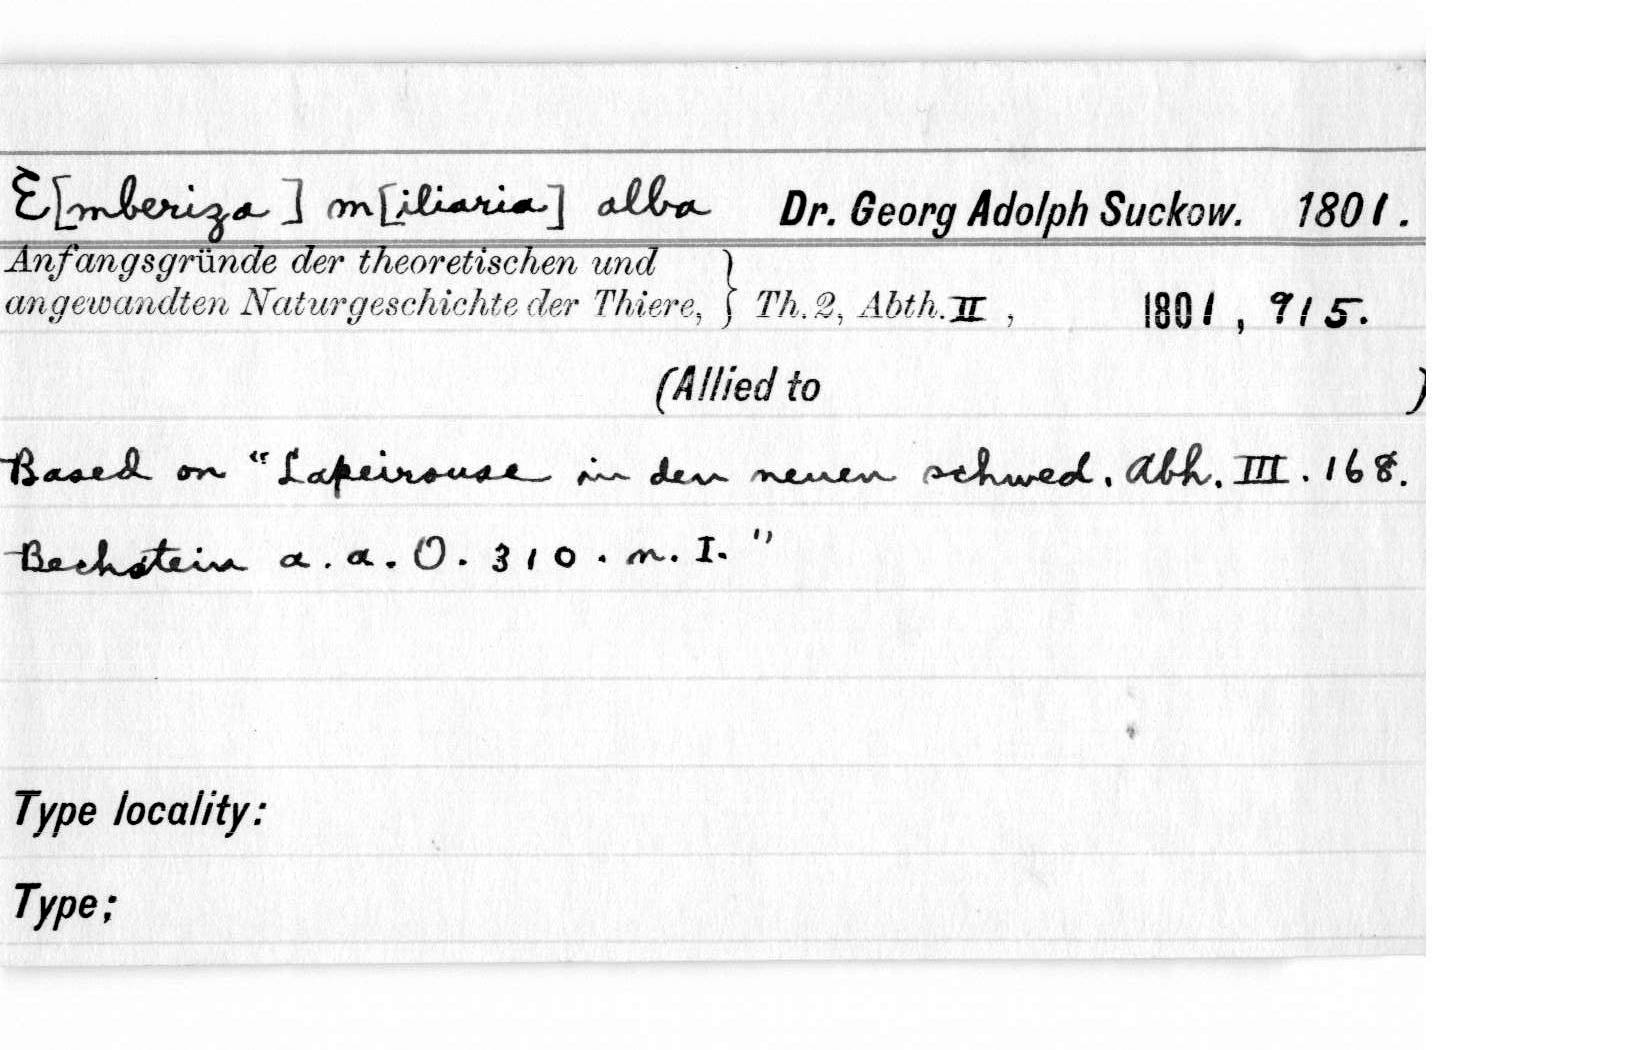 E[mberiza] m[iliaria] alba Dr. Georg Adolph Suckow. 1801.
Anfangsgründe der theoretischen und
angewandten Naturgeschichte der Thiere, } Th. 2, Abth. II, 1801, 915.
(Allied to )
Based on "Lapeirouse in den neuen schwed. Abh. III. 168.
Bechstein a. a. O. 310. n. I."
Type locality:
Type;